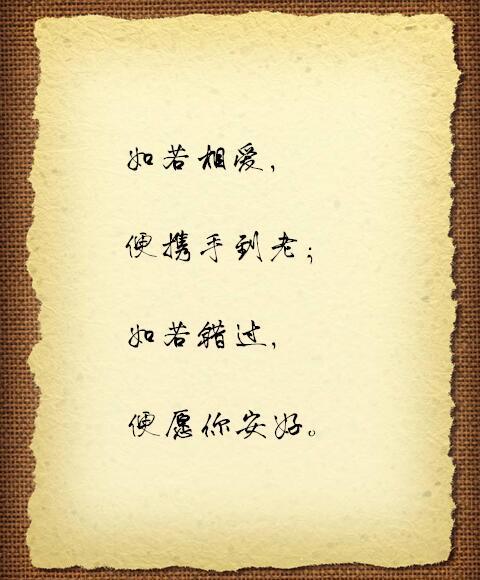 如若相爱，
便携手到老；
如若错过，
便愿你安好。